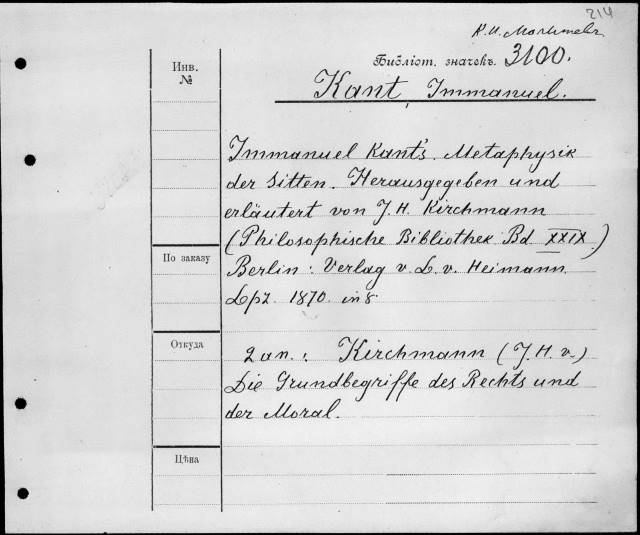 214
К. И.
Библіот. значекъ. 3100.
Инв.
№
Kant, Immanuel.
Immanuel Kant's. Metaphysik
der Sitten. Herausgegeben und
erläutert von J. H. Kirchmann
(Philosophische Bibliothek Bd. XXIX)
По заказу
Berlin: Verlag v. L. v. Heimann
Lpz. 1870. in 8.
Откуда
2 an.: Kirchmann (J. H. v.)
Die Grundbegriffe des Rechts und
der Moral.
Цѣна